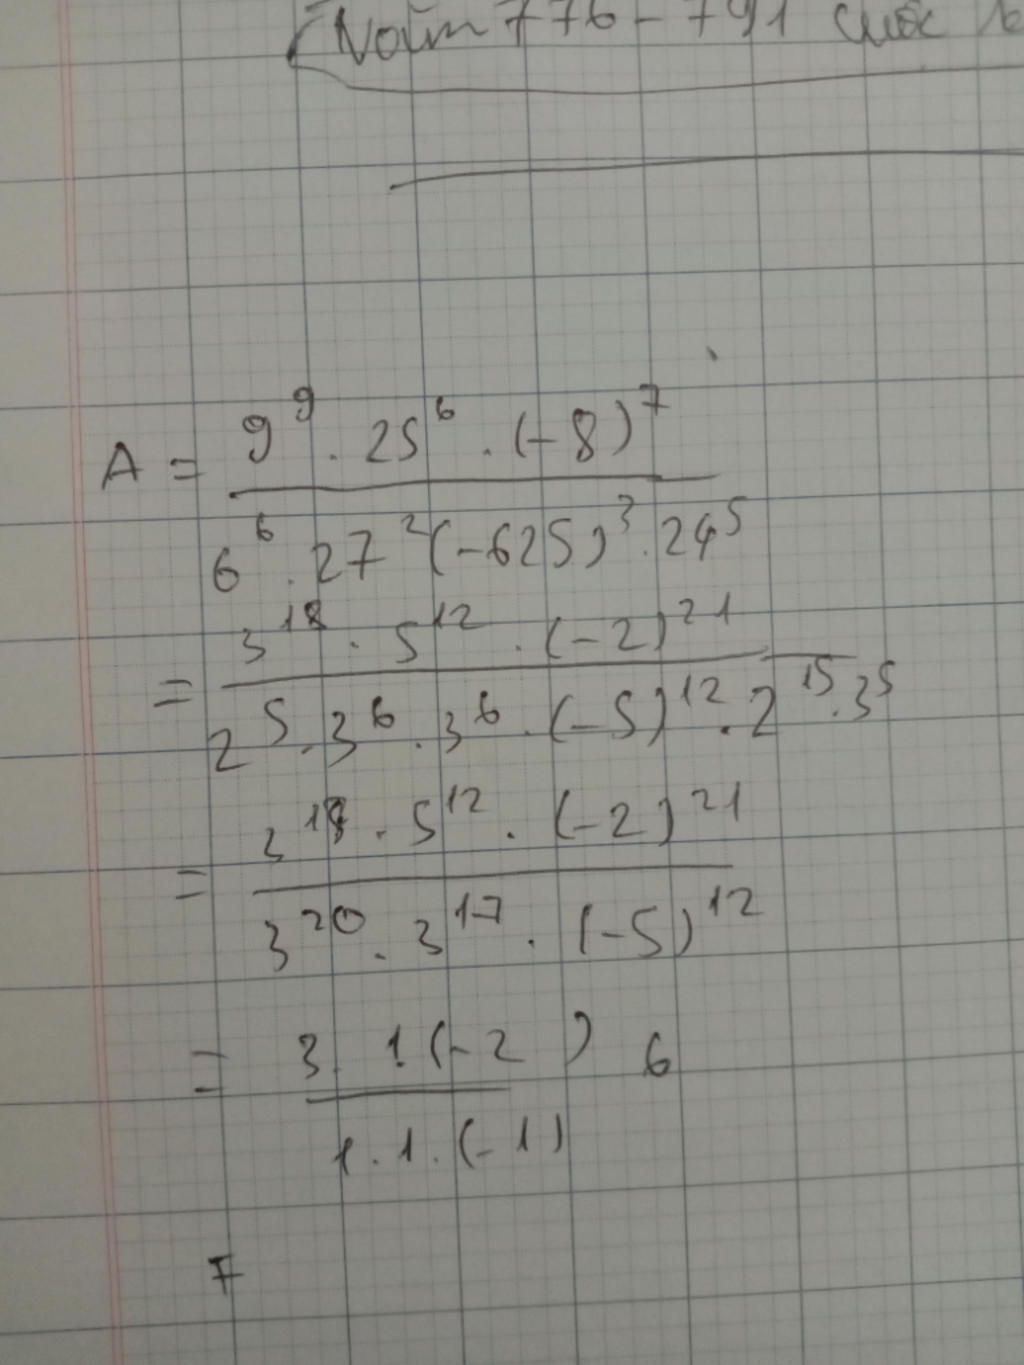 (Năm 776 - 791
A = 9^9 . 25^6 . (-8)^7 / 6^6 . 27^2 (-625)^3 . 24^5
= 3^18 . 5^12 . (-2)^21 / 2^5 . 3^6 . 3^6 . (-5)^12 . 2^15 . 3^5
= 3^18 . 5^12 . (-2)^21 / 3^20 . 3^17 . (-5)^12
= 3 . 1 . (-2) / 1 . 1 . (-1) 6